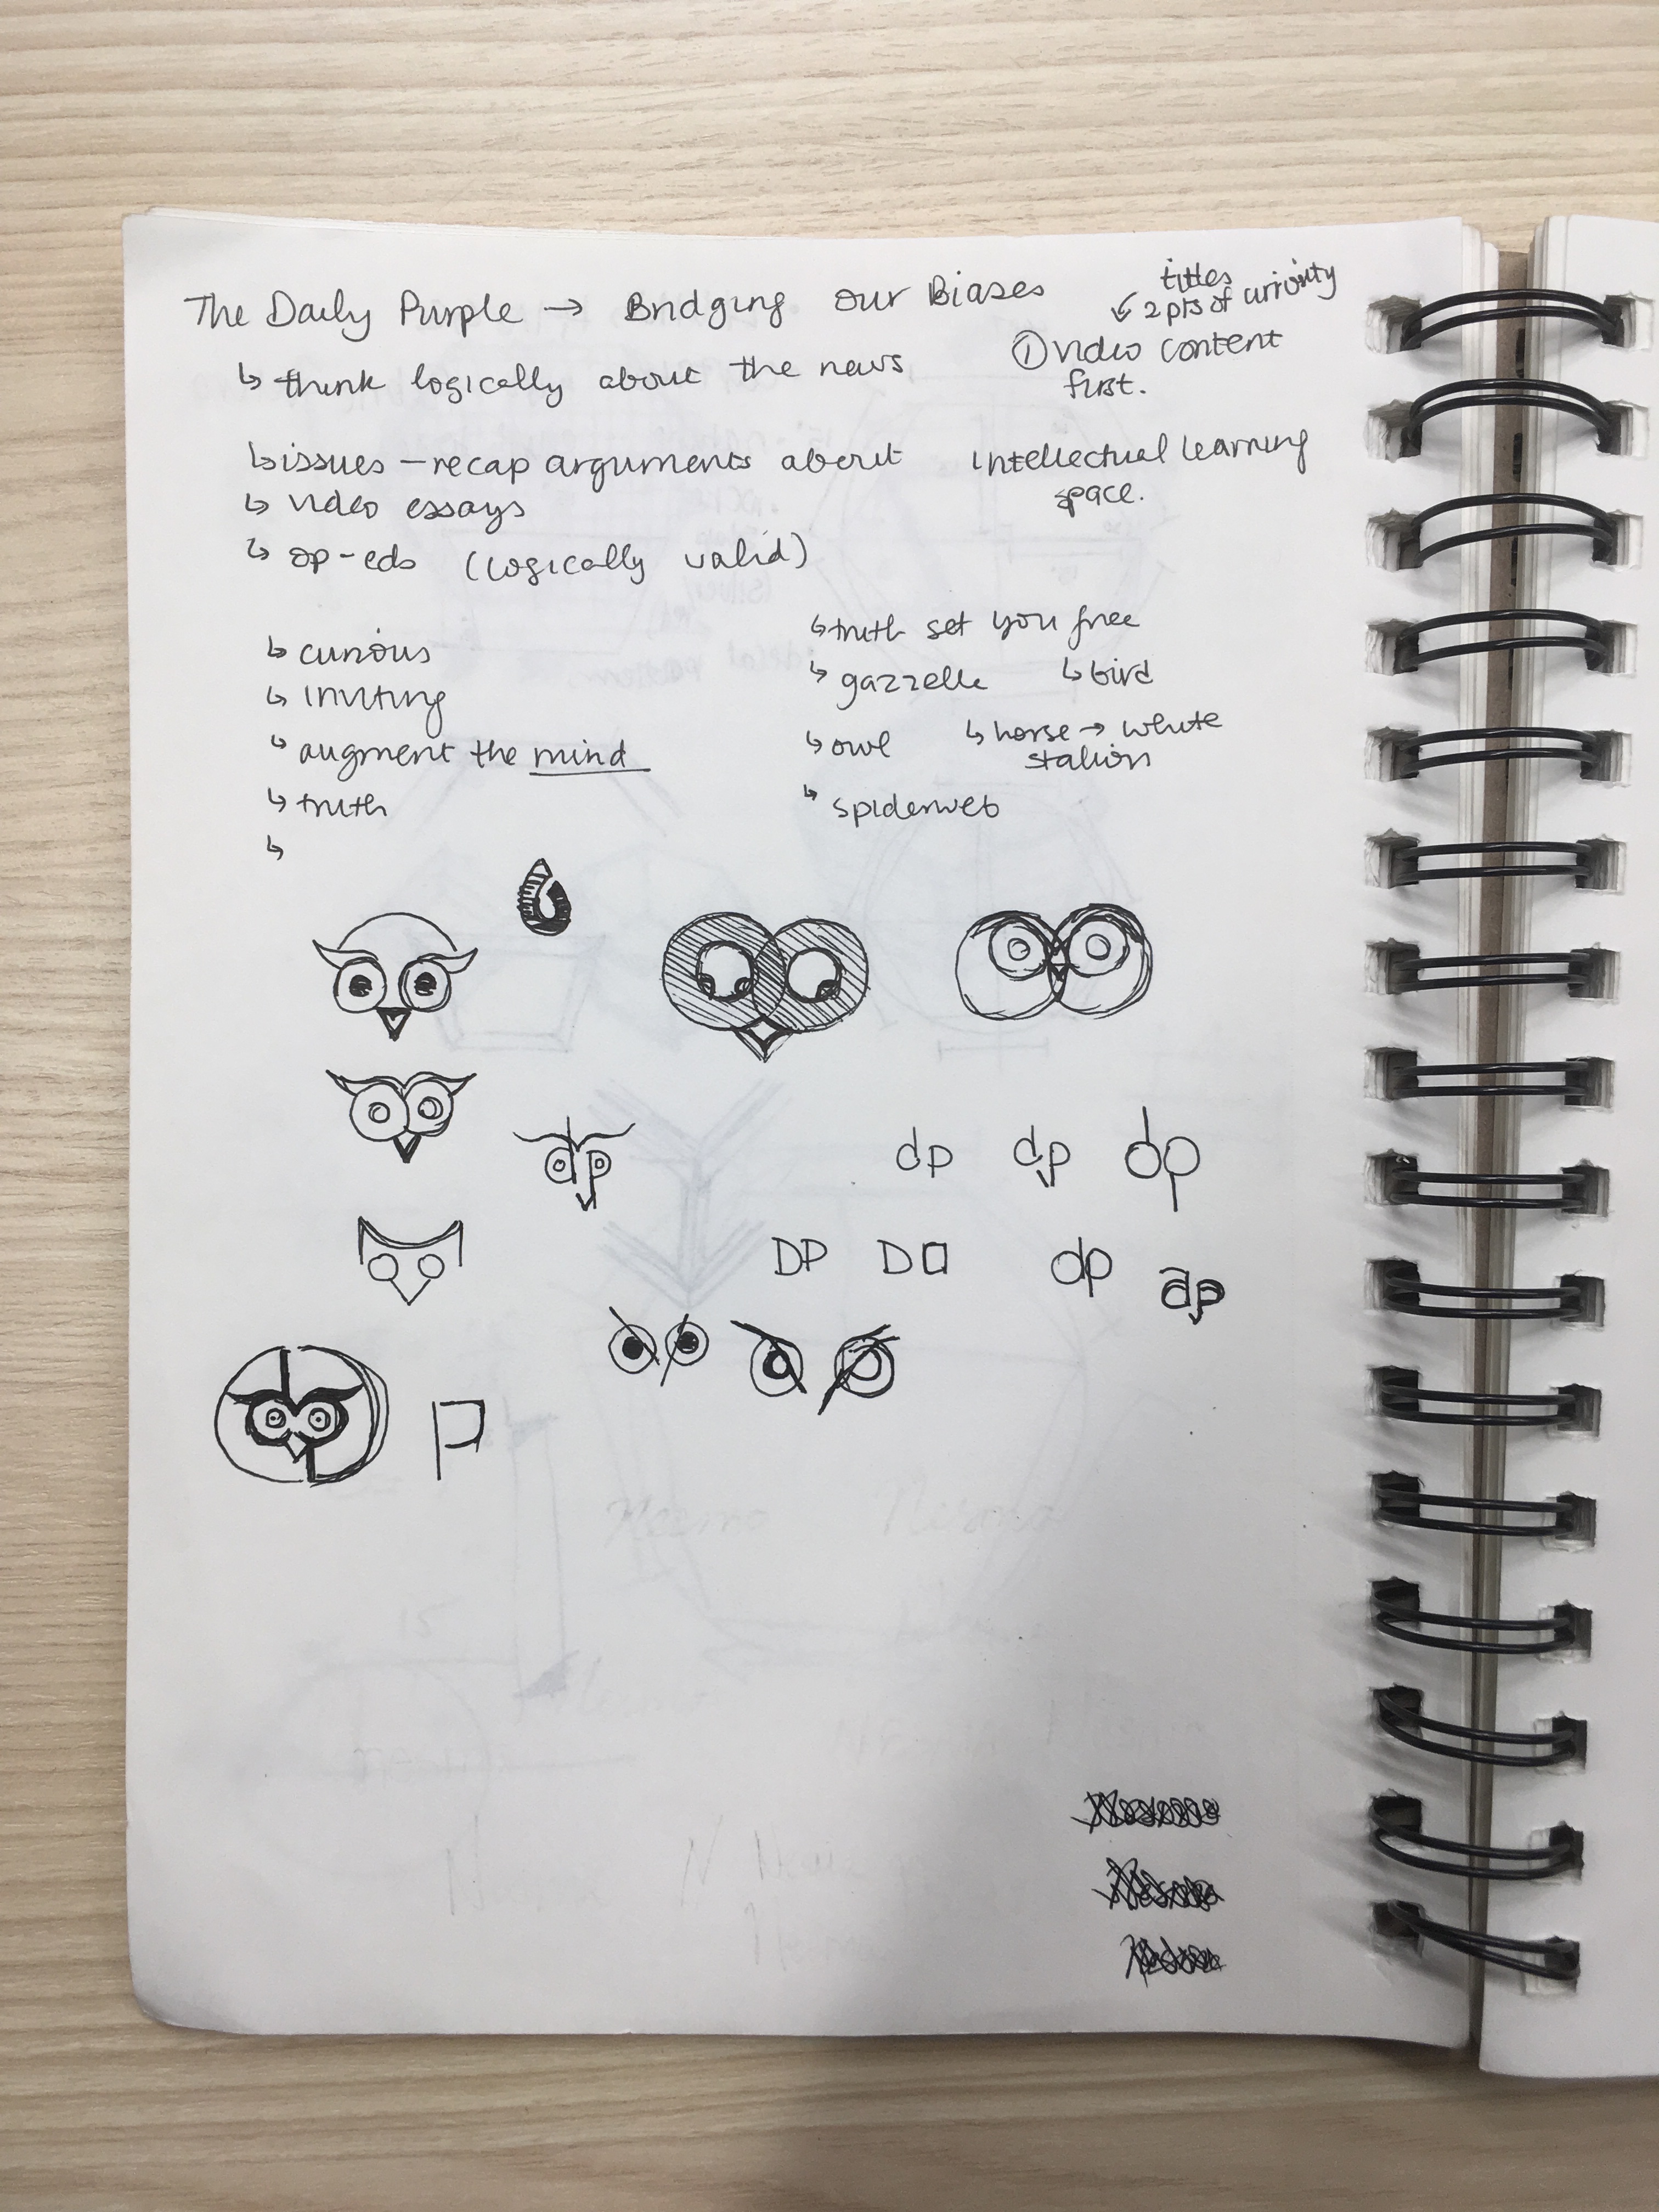 The Daily Purple → Bridging our Biases
titles
↙ 2 pts of curiosity
① video content
first.
↳ think logically about the news
↳ issues - recap arguments about
↳ video essays
↳ op-eds (logically valid)
Intellectual learning
space.
↳ curious
↳ inviting
↳ augment the mind
↳ truth
↳
↳ truth set you free
↳ gazzelle ↳ bird
↳ owl ↳ horse → white
stalion
↳ spiderweb
dp
dp dp dp
DP D
dp dp
P